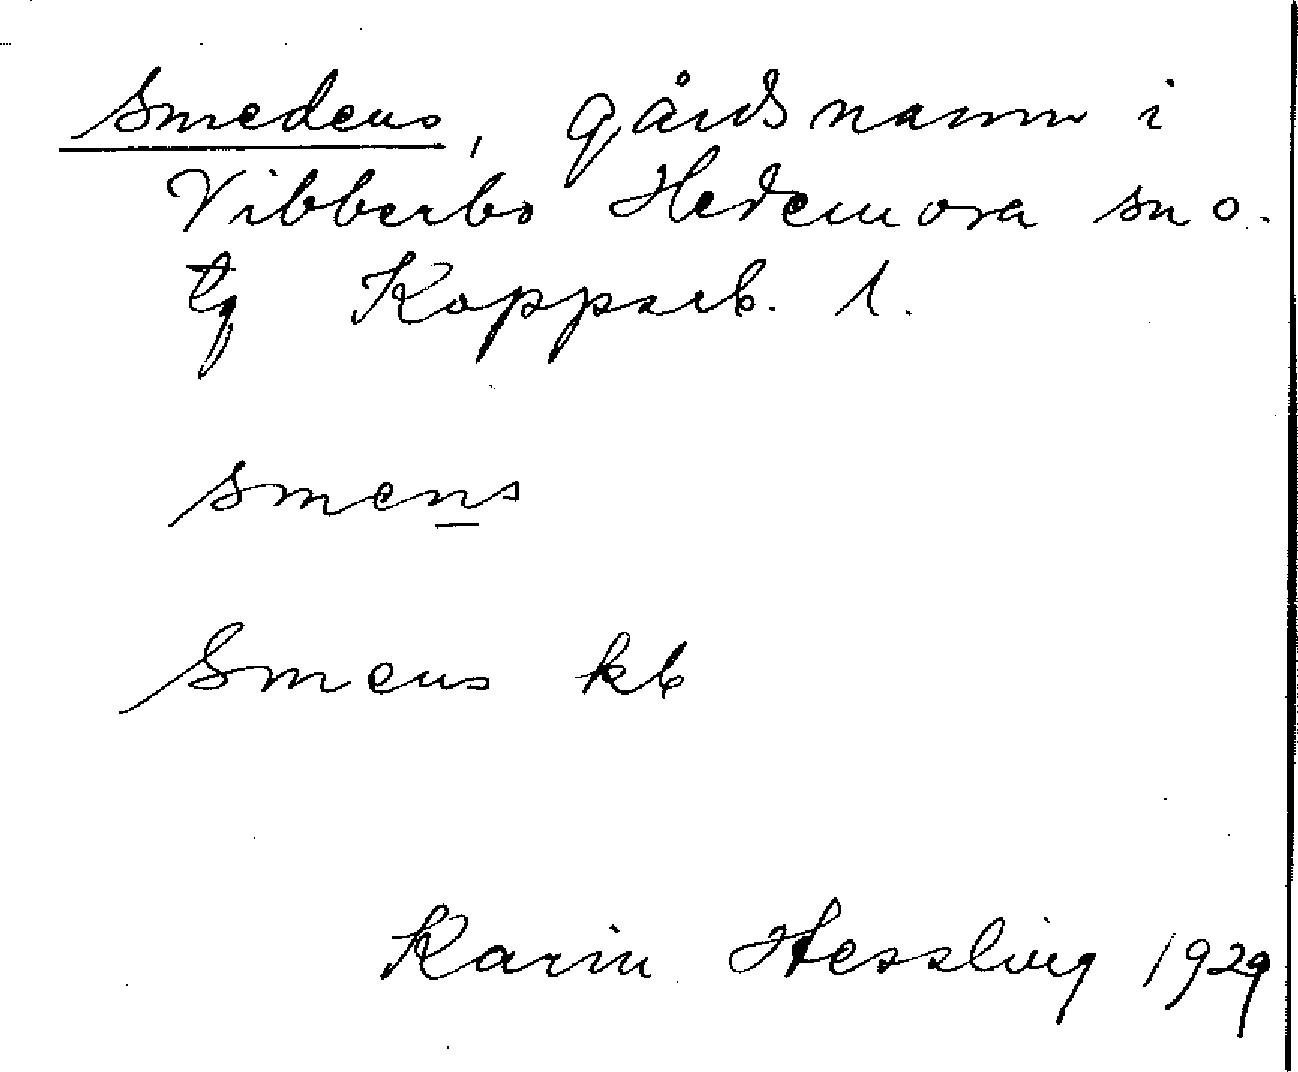 Smedens, gårdsnamn i
Vibberbo Hedemora sn o.
tg Kopparb. l.
smens
Smens kb
Karin Hessling 1929